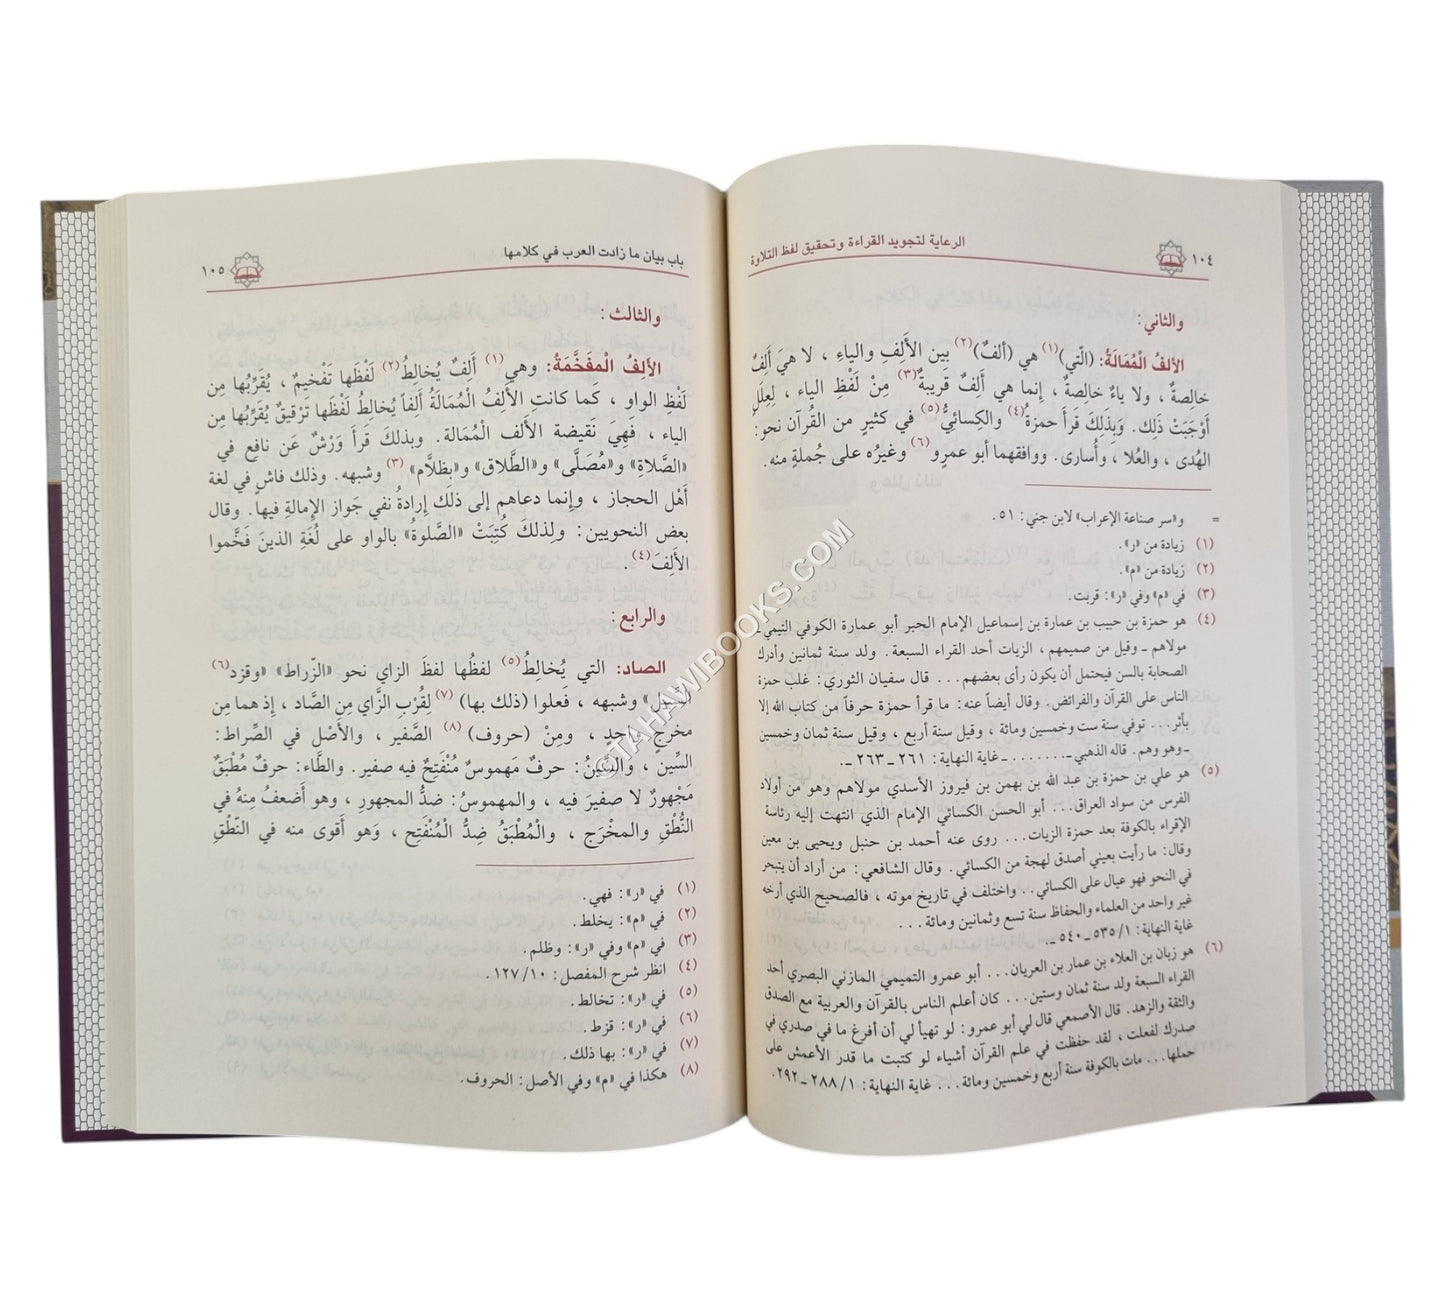 ١٠٤ الرعاية لتجويد القراءة وتحقيق لفظ التلاوة
والثاني:
الأَلفُ الْمُمَالَةُ: (الّتي)(١) هي (أَلفٌ)(٢) بين الأَلِفِ والياءِ ، لا هيَ أَلِفٌ
خالِصةٌ ، ولا ياءٌ خالِصةٌ ، إِنما هي أَلِفٌ قَريبةٌ(٣) مِنْ لَفْظِ الياء ، لِعِلَلٍ
أَوْجَبَتْ ذَلِك. وَبِذَلِكَ قَرَأَ حمزةُ(٤) والكِسائيُّ(٥) في كثيرٍ من القُرآن نحو:
الهُدى ، والعُلا ، وأُسارى. ووافقهما أبو عمرٍو(٦) وغيرُه على جُملةٍ منه.
= و«سر صناعة الإعراب» لابن جني: ٥١.
(١) زيادة من «ر».
(٢) زيادة من «م».
(٣) في «م» وفي «ر»: قربت.
(٤) هو حمزة بن حبيب بن عمارة بن إسماعيل الإمام الحبر أبو عمارة الكوفي التيمي ـ
مولاهم ـ وقيل من صميمهم ، الزيات أحد القراء السبعة. ولد سنة ثمانين وأدرك
الصحابة بالسن فيحتمل أن يكون رأى بعضهم... قال سفيان الثوري: غلب حمزة
الناس على القرآن والفرائض. وقال أيضاً عنه: ما قرأ حمزة حرفاً من كتاب الله إلا
بأثر... توفي سنة ست وخمسين ومائة ، وقيل سنة أربع ، وقيل سنة ثمان وخمسين
ـ وهو وهم. قاله الذهبي ـ....... ـ غاية النهاية: ٢٦١ ـ ٢٦٣ ـ.
(٥) هو علي بن حمزة بن عبد الله بن بهمن بن فيروز الأسدي مولاهم وهو من أولاد
الفرس من سواد العراق... أبو الحسن الكسائي الإمام الذي انتهت إليه رئاسة
الإقراء بالكوفة بعد حمزة الزيات... روى عنه أحمد بن حنبل ويحيى بن معين
وقال: ما رأيت بعيني أصدق لهجة من الكسائي. وقال الشافعي: من أراد أن يتبحر
في النحو فهو عيال على الكسائي.. واختلف في تاريخ موته ، فالصحيح الذي أرخه
غير واحد من العلماء والحفاظ سنة تسع وثمانين ومائة...
غاية النهاية: ١/ ٥٣٥ ـ ٥٤٠ ـ.
(٦) هو زبان بن العلاء بن عمار بن العريان... أبو عمرو التميمي المازني البصري أحد
القراء السبعة ولد سنة ثمان وستين... كان أعلم الناس بالقرآن والعربية مع الصدق
والثقة والزهد. قال الأصمعي قال لي أبو عمرو: لو تهيأ لي أن أفرغ ما في صدري في
صدرك لفعلت ، لقد حفظت في علم القرآن أشياء لو كتبت ما قدر الأعمش على
حملها... مات بالكوفة سنة أربع وخمسين ومائة... غاية النهاية: ١/ ٢٨٨ ـ ٢٩٢.
باب بيان ما زادت العرب في كلامها ١٠٥
والثالث:
الأَلِفُ الْمفَخَّمَةُ: وهي(١) أَلِفٌ يُخالِطُ(٢) لَفْظَها تَفْخيمٌ ، يُقَرِّبُها مِن
لَفْظِ الواو ، كَما كانتِ الأَلِفُ الْمُمَالَةُ أَلِفاً يُخالِطُ لَفْظَها تَرْقيقٌ يُقرِّبُها مِن
الياء ، فَهِيَ نَقيضة الأَلف الْمُمالة. وبذلكَ قَرأَ وَرْشٌ عَن نافِعٍ في
«الصَّلاةِ» و«مُصَلَّى» و«الطَّلاق» و«بِظلاَّم»(٣) وشبهه. وذلك فاشٍ في لغة
أَهْل الحجاز ، وإِنما دعاهم إلى ذلك إِرادةُ نفي جَواز الإِمالةِ فيها. وقال
بعض النحويين: ولِذلكَ كُتِبَتْ «الصَّلوةُ» بالواو على لُغَةِ الذينَ فَخَّموا
الأَلِفَ(٤).
والرابع:
الصاد: التي يُخالِطُ(٥) لفظُها لفظَ الزاي نحو «الزّراط» «وقزد(٦)
السبيل» وشبهه ، فَعلوا (ذلك بها)(٧) لِقُرْبِ الزَّاي مِنِ الصَّاد ، إِذ هما مِن
مخرجٍ واحِدٍ ، ومِنْ (حروف)(٨) الصَّفير ، والأَصْل في الصِّراط:
السِّين ، والسِّينُ: حرفٌ مَهموسٌ مُنْفَتِحٌ فيه صفير. والطَّاء: حرفٌ مُطبَقٌ
مَجْهورٌ لا صفيرَ فيه ، والمهموسُ: ضدُّ المجهورِ ، وهو أَضعفُ مِنهُ في
النُّطْقِ والمخْرَجِ ، والْمُطْبَقُ ضِدُّ الْمُنْفَتِح ، وَهو أَقوى منه في النّطْقِ
(١) في «ر»: فهي.
(٢) في «م»: يخلط.
(٣) في «م» وفي «ر»: وظلم.
(٤) انظر شرح المفصل: ١٠/ ١٢٧.
(٥) في «ر»: تخالط.
(٦) في «ر»: قزط.
(٧) في «ر»: بها ذلك.
(٨) هكذا في «م» وفي الأصل: الحروف.
©TAHAWIBOOKS.COM